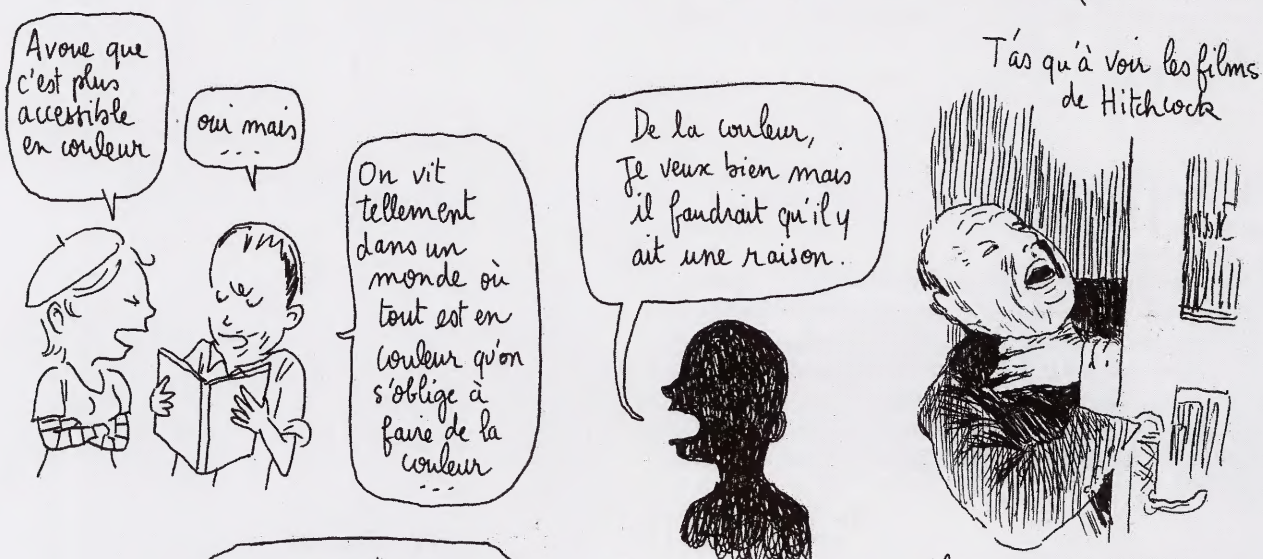 Avoue que
c'est plus
accessible
en couleur
oui mais
...
On vit
tellement
dans un
monde où
tout est en
couleur qu'on
s'oblige à
faire de la
couleur
...
De la couleur,
Je veux bien mais
il faudrait qu'il y
ait une raison.
T'as qu'à voir les films
de Hitchcock